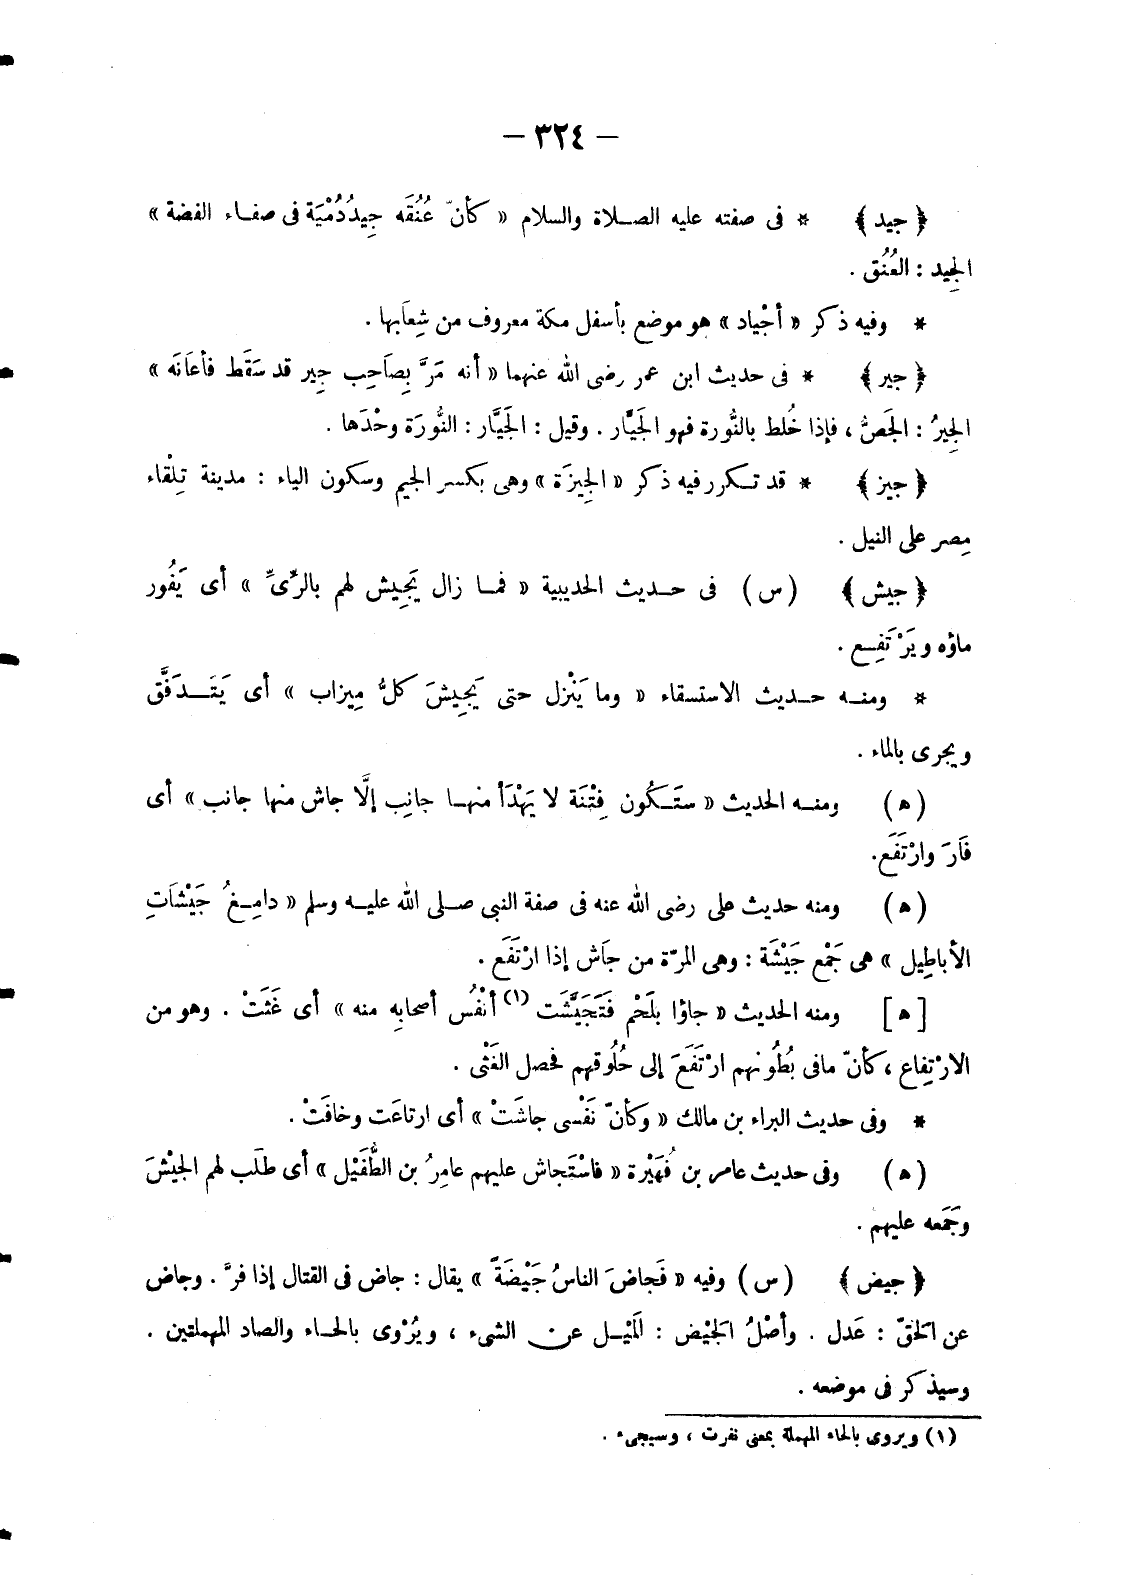 — ٣٢٤ —
﴿ جيد ﴾ * فى صفته عليه الصلاة والسلام « كأنّ عُنُقَه جِيدُ دُمْيَة فى صفاء الفضة »
الجِيد : العُنُق .
* وفيه ذكر « أجْياد » هو موضع بأسفل مكة معروف من شِعَابها .
﴿ جير ﴾ * فى حديث ابن عمر رضى الله عنهما « أنه مَرَّ بِصَاحِب جِير قد سَقَط فأعَانَه »
الجِيرُ : الجَصُّ ، فإذا خُلط بالنُّورة فهو الجَيَّار . وقيل : الجَيَّار : النُّورَة وحْدَها .
﴿ جيز ﴾ * قد تكرر فيه ذكر « الجِيزَة » وهى بكسر الجيم وسكون الياء : مدينة تِلْقاء
مِصر على النيل .
﴿ جيش ﴾ (س) فى حديث الحديبية « فما زال يَجِيش لهم بالرِّىِّ » أى يَفُور
ماؤه ويَرْتَفِع .
* ومنه حديث الاستسقاء « وما يَنْزل حتى يَجِيشَ كلُّ مِيزاب » أى يَتَدَفَّق
ويجرى بالماء .
(ه) ومنه الحديث « ستَكُون فِتْنَة لا يَهْدَأ منها جانِب إلَّا جاش منها جانب » أى
فَارَ وارْتَفَع .
(ه) ومنه حديث على رضى الله عنه فى صفة النبى صلى الله عليه وسلم « دامِغُ جَيْشَاتِ
الأباطِيل » هى جَمْع جَيْشَة : وهى المرّة من جَاش إذا ارْتَفَع .
[ه] ومنه الحديث « جاؤا بلَحْم فَتَجَيَّشَت (١) أنْفُس أصحابِه منه » أى غَثَتْ . وهو من
الارْتِفاع ، كأنّ مافى بُطُونهم ارْتَفَعَ إلى حُلُوقهم فحصل الغَثْى .
* وفى حديث البراء بن مالك « وكأنّ نَفْسى جاشَتْ » أى ارتاعَت وخافَتْ .
(ه) وفى حديث عامر بن فُهَيْرة « فاسْتَجاش عليهم عامِرُ بن الطُّفَيْل » أى طلَب لهم الجَيْشَ
وجَمَعه عليهم .
﴿ جيض ﴾ (س) وفيه « فَجاضَ الناسُ جَيْضَةً » يقال : جاض فى القتال إذا فرَّ . وجاض
عن الحَقّ : عَدل . وأصْلُ الجَيْض : المَيْل عن الشىء ، ويُرْوى بالحاء والصاد المهملتين .
وسيذكر فى موضعه .
(١) ويروى بالحاء المهملة بمعنى نفرت ، وسيجىء .